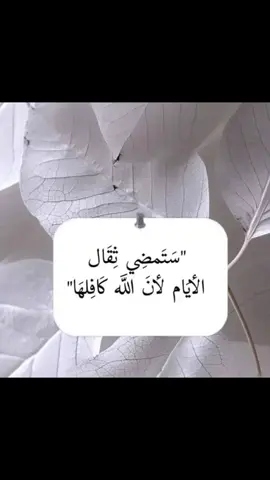 "سَتَمضِي ثِقَال
الأيام لأنَ اللَّه كَافِلهَا"